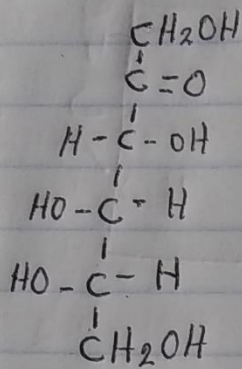 CH2OH
C=O
H-C-OH
HO-C-H
HO-C-H
CH2OH